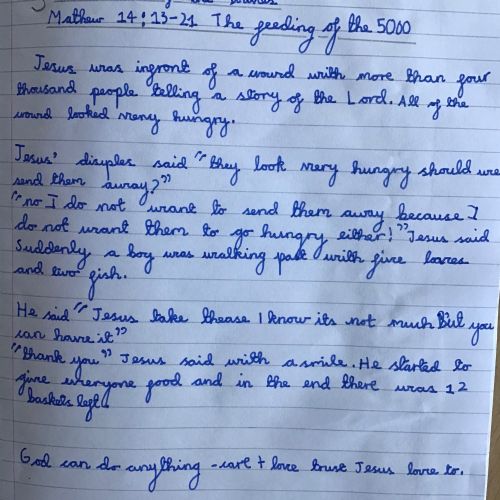 Mathew 14:13-21 The feeding of the 5000
Jesus was infront of a crowd with more than four
thousand people telling a story of the Lord. All of the
crowd looked very hungry.
Jesus' disiples said "they look very hungry should we
send them away?"
"no I do not want to send them away because I
do not want them to go hungry either!" Jesus said
Suddenly a boy was walking past with five loaves
and two fish.
He said "Jesus take thease I know its not much But you
can have it"
"thank you" Jesus said with a smile. He started to
give everyone food and in the end there was 12
baskets left.
God can do anything - care + love trust Jesus love to.